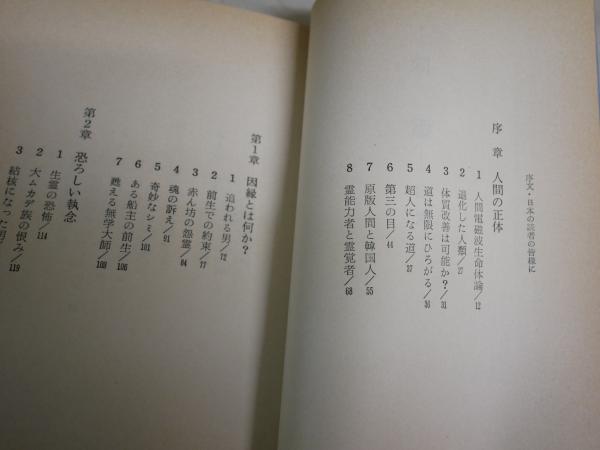 序文・日本の読者の皆様に
序章 人間の正体
1 人間電磁波生命体論/12
2 退化した人類/27
3 体質改善は可能か?/31
4 道は無限にひろがる/36
5 超人になる道/37
6 第三の目/44
7 原版人間と韓国人/55
8 霊能力者と霊覚者/68
第1章 因縁とは何か?
1 追われる男/72
2 前生での約束/77
3 赤ん坊の怨霊/84
4 魂の訴え/91
5 奇妙なシミ/101
6 ある船主の前生/106
7 甦える無学大師/108
第2章 恐ろしい執念
1 生霊の恐怖/114
2 大ムカデ族の恨み/116
3 結核になった男/119